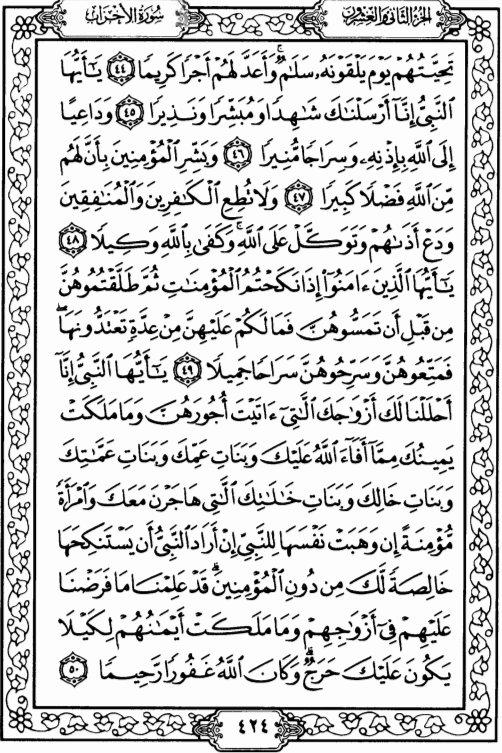 سُورَةُ الأَحْزَابِ
الجُزْءُ الثَّانِي وَالعِشْرُون
تَحِيَّتُهُمْ يَوْمَ يَلْقَوْنَهُۥ سَلَٰمٌۚ وَأَعَدَّ لَهُمْ أَجْرًا كَرِيمًا ﴿٤٤﴾ يَٰٓأَيُّهَا
ٱلنَّبِىُّ إِنَّآ أَرْسَلْنَٰكَ شَٰهِدًا وَمُبَشِّرًا وَنَذِيرًا ﴿٤٥﴾ وَدَاعِيًا
إِلَى ٱللَّهِ بِإِذْنِهِۦ وَسِرَاجًا مُّنِيرًا ﴿٤٦﴾ وَبَشِّرِ ٱلْمُؤْمِنِينَ بِأَنَّ لَهُم
مِّنَ ٱللَّهِ فَضْلًا كَبِيرًا ﴿٤٧﴾ وَلَا تُطِعِ ٱلْكَٰفِرِينَ وَٱلْمُنَٰفِقِينَ
وَدَعْ أَذَىٰهُمْ وَتَوَكَّلْ عَلَى ٱللَّهِۚ وَكَفَىٰ بِٱللَّهِ وَكِيلًا ﴿٤٨﴾
يَٰٓأَيُّهَا ٱلَّذِينَ ءَامَنُوٓا۟ إِذَا نَكَحْتُمُ ٱلْمُؤْمِنَٰتِ ثُمَّ طَلَّقْتُمُوهُنَّ
مِن قَبْلِ أَن تَمَسُّوهُنَّ فَمَا لَكُمْ عَلَيْهِنَّ مِنْ عِدَّةٍ تَعْتَدُّونَهَاۖ
فَمَتِّعُوهُنَّ وَسَرِّحُوهُنَّ سَرَاحًا جَمِيلًا ﴿٤٩﴾ يَٰٓأَيُّهَا ٱلنَّبِىُّ إِنَّآ
أَحْلَلْنَا لَكَ أَزْوَٰجَكَ ٱلَّٰتِىٓ ءَاتَيْتَ أُجُورَهُنَّ وَمَا مَلَكَتْ
يَمِينُكَ مِمَّآ أَفَآءَ ٱللَّهُ عَلَيْكَ وَبَنَاتِ عَمِّكَ وَبَنَاتِ عَمَّٰتِكَ
وَبَنَاتِ خَالِكَ وَبَنَاتِ خَٰلَٰتِكَ ٱلَّٰتِى هَاجَرْنَ مَعَكَ وَٱمْرَأَةً
مُّؤْمِنَةً إِن وَهَبَتْ نَفْسَهَا لِلنَّبِىِّ إِنْ أَرَادَ ٱلنَّبِىُّ أَن يَسْتَنكِحَهَا
خَالِصَةً لَّكَ مِن دُونِ ٱلْمُؤْمِنِينَۗ قَدْ عَلِمْنَا مَا فَرَضْنَا
عَلَيْهِمْ فِىٓ أَزْوَٰجِهِمْ وَمَا مَلَكَتْ أَيْمَٰنُهُمْ لِكَيْلَا
يَكُونَ عَلَيْكَ حَرَجٌۗ وَكَانَ ٱللَّهُ غَفُورًا رَّحِيمًا ﴿٥٠﴾
٤٢٤